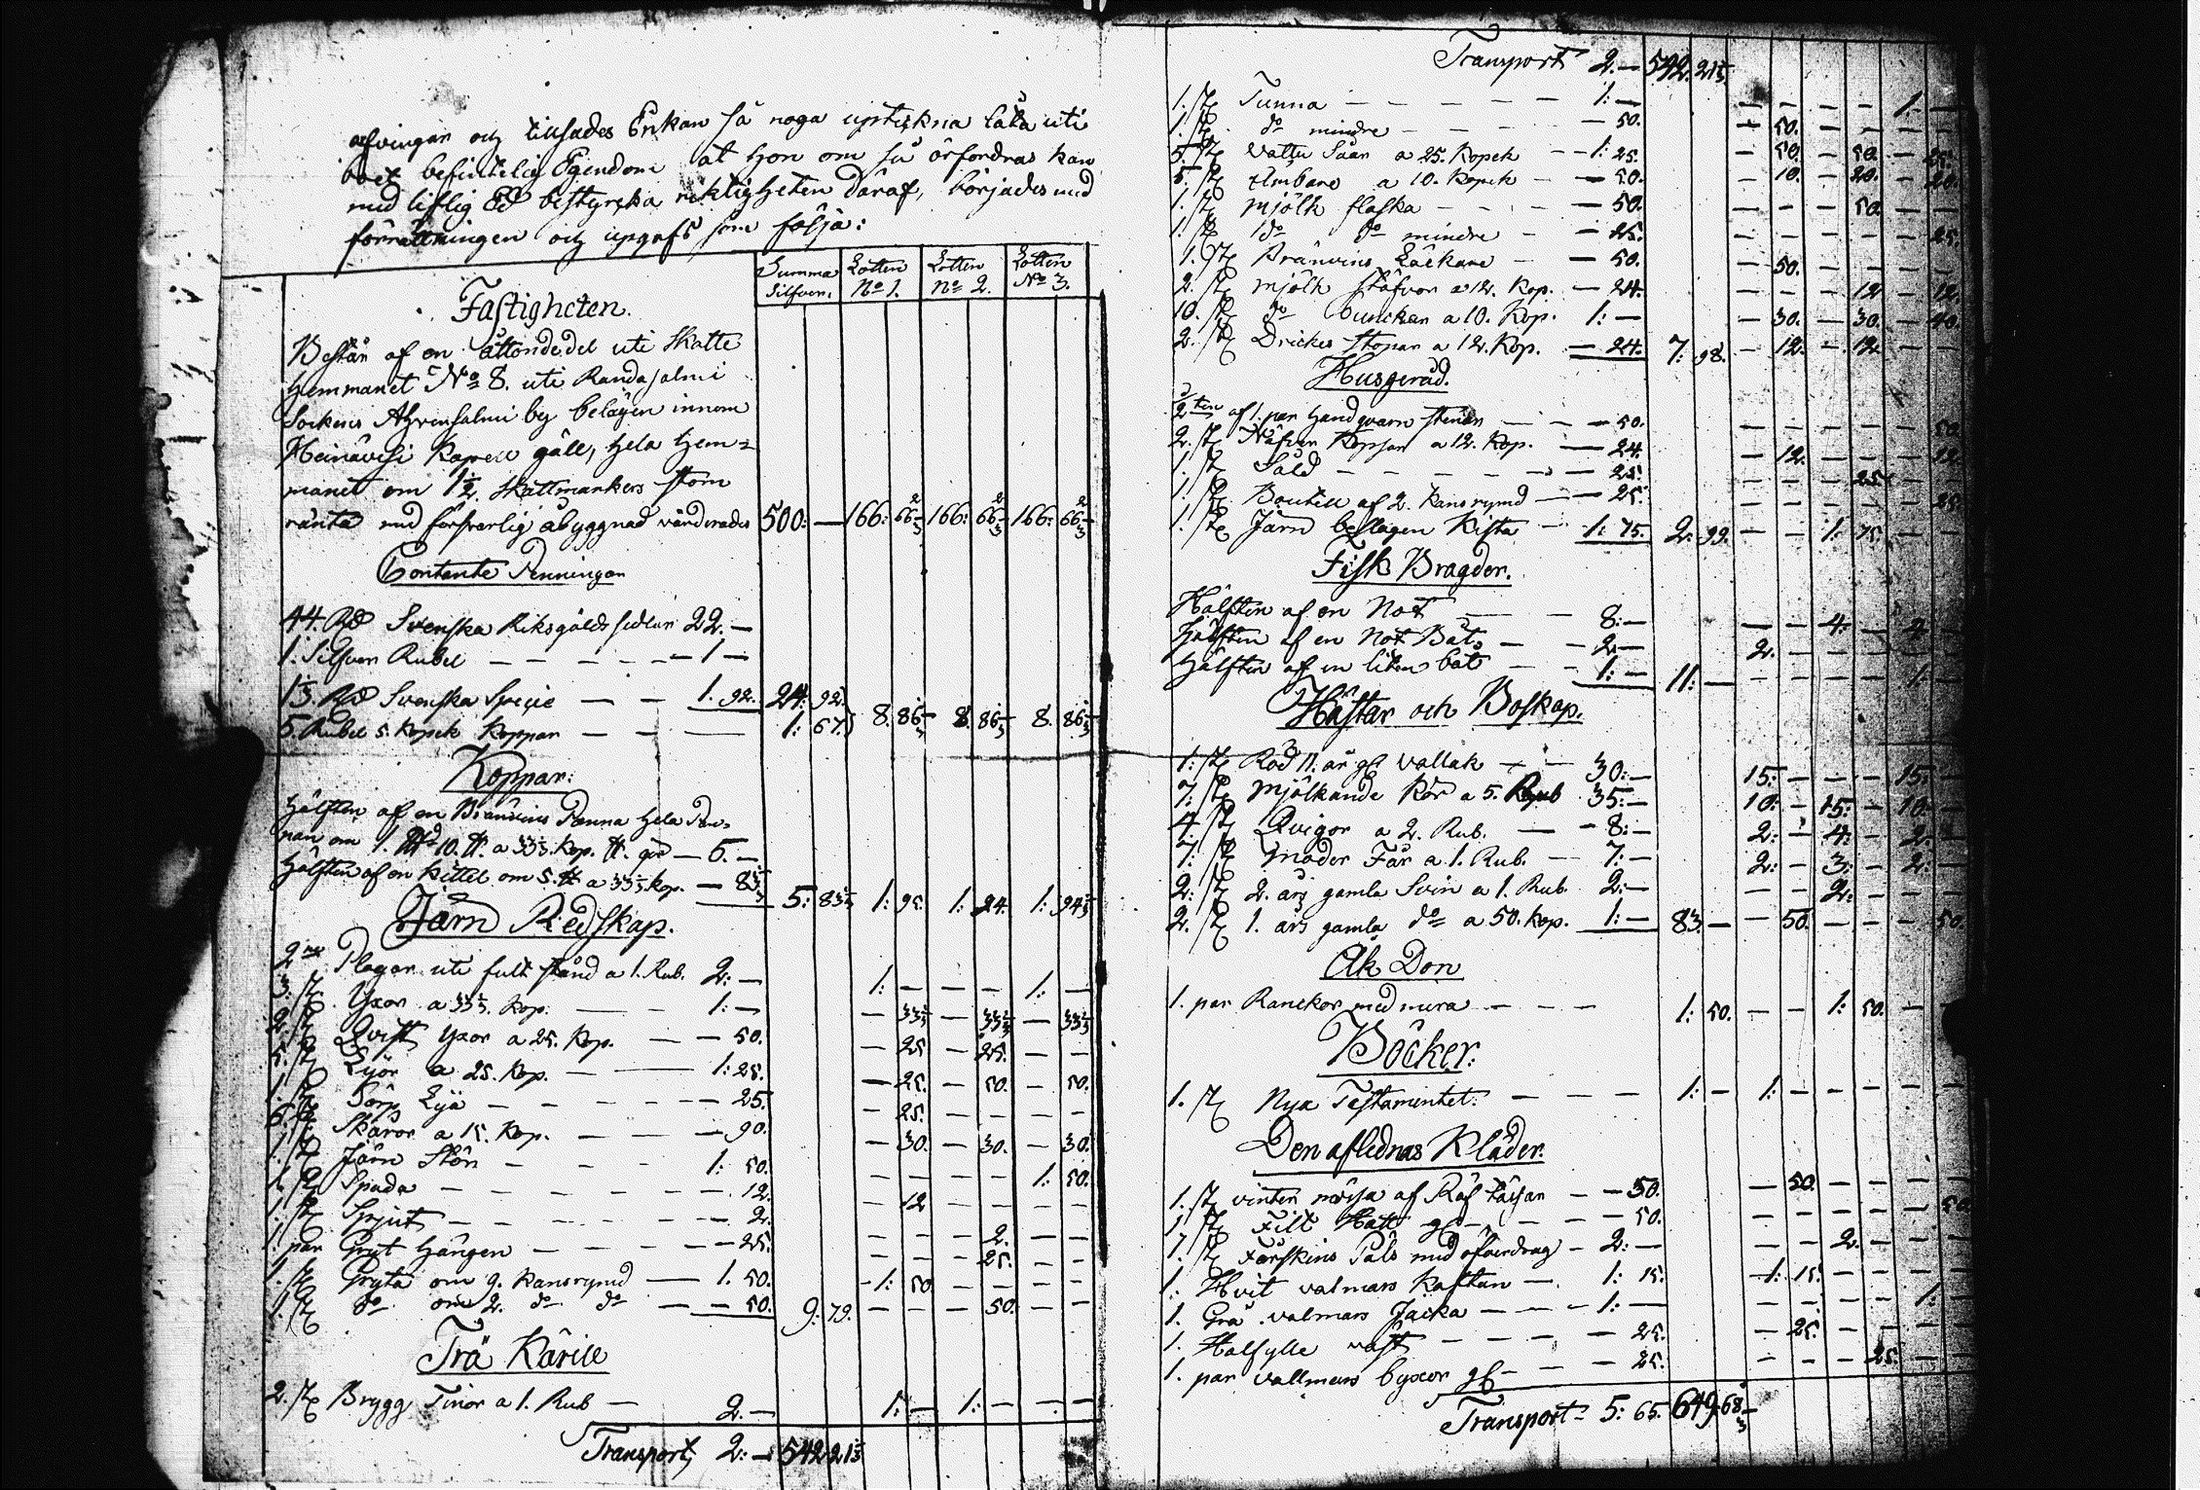 arfvingar och tillsades Enkan så noga uptekna låta uti
boet befintelig Egendom at hon om så örfordras kan
med liflig Ed bestyrcka riktigheten däraf, börjades med
förrättningen och upgafs som följa:
Summa Silfver. Lotten No 1. Lotten No 2. Lotten No 3.
Fastigheten.
Består af en åttondedel uti Skatte
Hemmanet No 8. uti Randasalmi
Sockens Ahvensalmi by belägen innom
Heinävesi Kapell gäll, hela Hem=
manet om 1 1/2 Skattmarkers
ränta med försvarlig åbyggnad värderades 500:— 166: 66 2/3 166: 66 2/3 166: 66 2/3
Contante Penningar
44. Rd Svenska Riksgälds sedlar 22.—
1. Silfver Rubel — — — — — 1 —
1 1/3 Rd Svenska Specie — — 1. 92. 24: 92.
5. Rubel 5. Kopek Koppar — — — 1: 67. 8. 86 1/3 8. 86 1/3 8. 86 1/3
Koppar:
Hälften af en Brännvins Panna hela Pan-
nan om 1. 10. ℔. a 33 1/3 Kop. ℔. gör — 5. —
Hälften af en kittel om 5. ℔ a 33 1/3 kop. — 83 1/3 5: 83 1/3 1: 95. 1: 94. 1: 94 1/3
Järn Redskap.
2ne Plogar uti fult stånd a 1. Rub. 2: — 1: — — — 1: —
3. st Yxor a 33 1/3 Kop. — — 1: — — 33 1/3 — 33 1/3 — 33 1/3
2. st Qvist Yxor a 25. Kop. — — 50. — 25 — 25. — —
5. st Lijor a 25. Kop. — — 1: 25. — 25. — 50. — 50.
1. st Lija — — — — 25. — 25. — — — —
6. st Skäror a 15. Kop. — — — 90. — 30. — 30. — 30.
1. st Järn Stör — — — 1: 50. — — — — 1: 50.
1. st Spada — — — — — — 12. — 12 — — — —
1. st Spjut — — — — — — 2. — — — 2. — —
1. par Gryt Hängen — — — — 25. — — — 25. — —
1. st Gryta om 9. kansrymd — 1. 50. — 1: 50 — — — —
1. st do om 2. do do — — 50. 9: 79. — — — 50. — —
Trä Käril
2. st Brygg Tinor a 1. Rub — 2. — 1: — 1: — — —
Transport 2: — 542 21 1/3
Transport 2. — 542. 21 1/3
1. st Tunna — — — — — — 1: — — — — — 1: —
1. st do mindre — — — — 50. — 50. — — — —
5. st Vattu Såar a 25. Kopek — 1: 25. — 50. — 50. — 25.
5. st Ämbare a 10. Kopek — — 50. — 10. — 20. — 20.
1. st Mjölk flaska — — — — 50. — — — 50. — —
1. st do do mindre — — 25. — — — — — 25.
1. st Bränvins Läckare — — 50. — 50. — — — —
2. st Mjölk Stäfvor a 12. Kop. — 24. — — — 12 — 12.
10. st do bunckar a 10. Kop. 1: — — 30. — 30. — 40.
2. st Drickes Stopar a 12. Kop. — 24. 7: 98. — 12. — 12 — —
Husgeråd.
af 1. par Handqvarn stenar — — 50. — — — — — 50.
2. st Näfver Kopsar a 12. Kop. — 24. — 12. — — — 12.
1. st Såld — — — — — — 25. — — — 25 — —
1. st Boutell af 2. Kansrymd — — 25. — — — — — 25.
1. st Järn beslagen Kista — 1: 75. 2: 99. — — 1: 75. — —
Fisk Bragder.
Hälften af en Not — — — 8: — — — 4: — 4: —
Hälften af en Not Båt — — 2. — 2. — — — — —
Hälften af en liten båt — — 1: — 11: — — — — — 1: —
Hästar och Boskap.
1. st Röd 11. år gl Vallak — — 30: — 15: — — — 15: —
7. st Mjölkande Kor a 5. Rub 35: — 10: — 15: — 10: —
4. st Qvigor a 2. Rub. — — 8: — 2: — 4: — 2: —
7. st Moder Får a 1. Rub. — 7: — 2: — 3: — 2: —
2: st 2. års gamla Svin a 1. Rub. 2: — — — 2: — — —
2. st 1. års gamla do a 50. kop. 1: — 83. — — 50. — — — 50.
Åk Don
1. par Ranckor med mera — — — 1: 50. — — 1: 50. — —
Böcker:
1. st Nya Testamentet. — — — — 1: — 1: — — — — —
Den aflednas Kläder.
1. st vinter mössa af Räf tassar — — 50. — 50. — — — —
1. st Filt Hatt gl — — — — 50. — — — — — 50.
1. st Fårskins Päls med öfverdrag — 2: — — — 2. — — —
1. Hvit valmars Kaftan — 1: 15. — 1: 15. — — — —
1. Grå valmars Jacka — — — 1: — — — — — 1: —
1. Halfylle väst — — — — — 25. — 25. — — — —
1. par vallmars byxor gl — — — 25. — — — 25. — —
Transport 5: 65. 649. 68 1/3